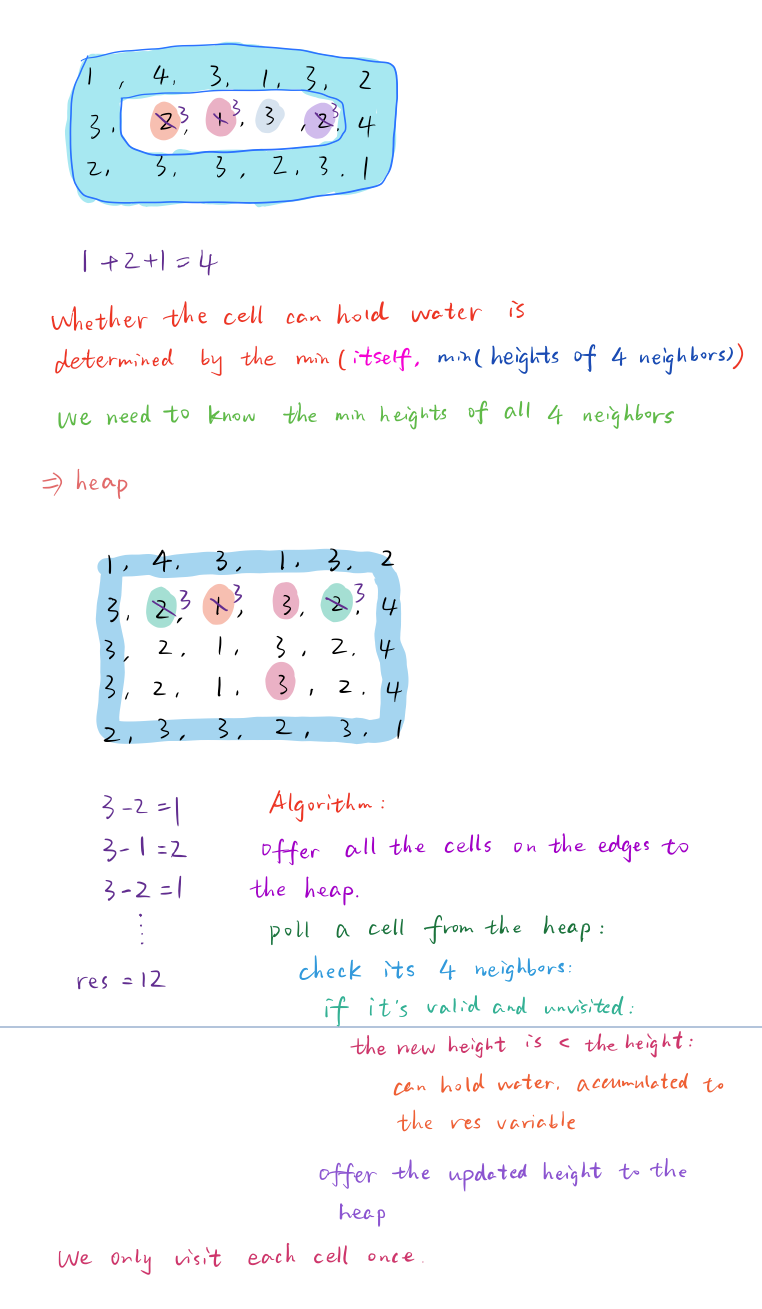 1, 4, 3, 1, 3, 2
3, 2 3, 1 3, 3, 2 3, 4
2, 3, 3, 2, 3. 1
1+2+1=4
Whether the cell can hold water is
determined by the min(itself, min(heights of 4 neighbors))
We need to know the min heights of all 4 neighbors
⇒ heap
1, 4, 3, 1, 3, 2
3, 2 3, 1 3, 3, 2 3, 4
3, 2, 1, 3, 2, 4
3, 2, 1, 3, 2. 4
2, 3, 3, 2, 3. 1
3-2=1
3-1=2
3-2=1
⋮
res=12
Algorithm:
offer all the cells on the edges to
the heap.
poll a cell from the heap:
check its 4 neighbors:
if it's valid and unvisited:
the new height is < the height:
can hold water, accumulated to
the res variable
offer the updated height to the
heap
We only visit each cell once.